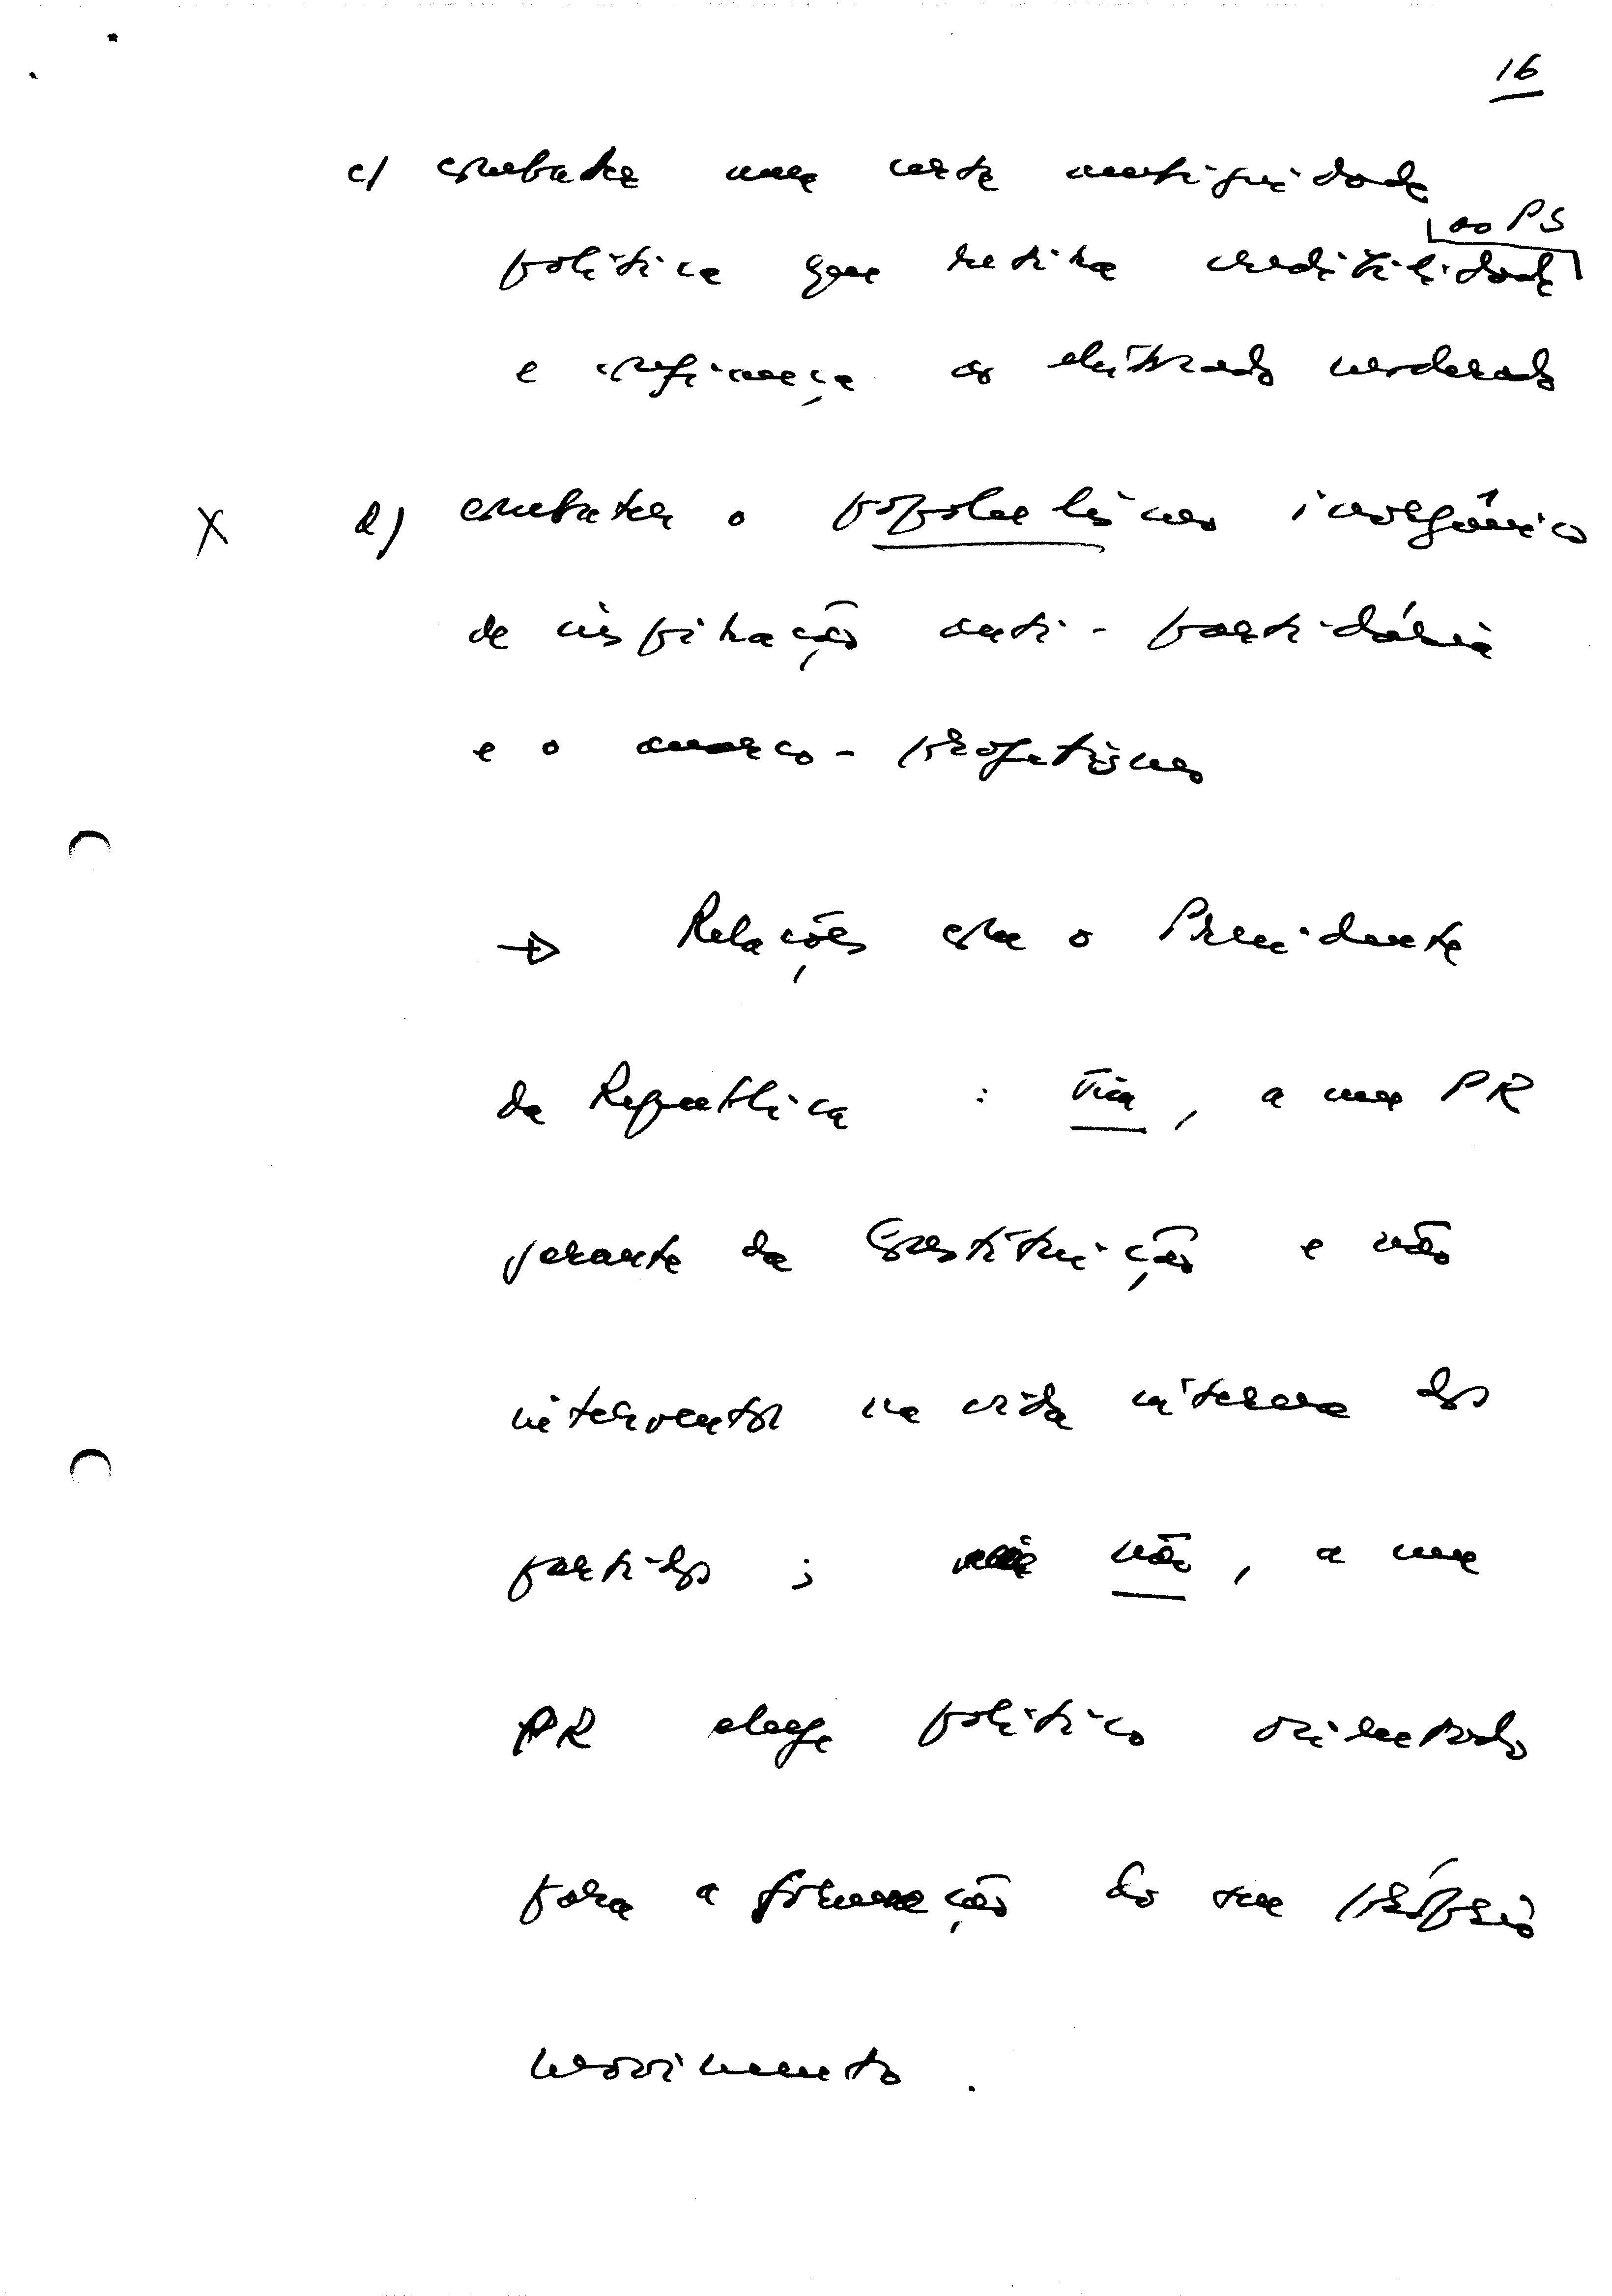 16
c) combater uma certa ambiguidade
ao PS
política que retira credibilidade
e confiança ao eleitorado moderado
X d) combater o populismo inorgânico
de inspiração anti-partidária
e o anarco-profetismo
→ Relações com o Presidente
da República : Sim, a um PR
garante da Constituição e não
interventor na vida interna dos
partidos ; não, a um
PR chefe político orientado
para a formação do seu próprio
movimento.